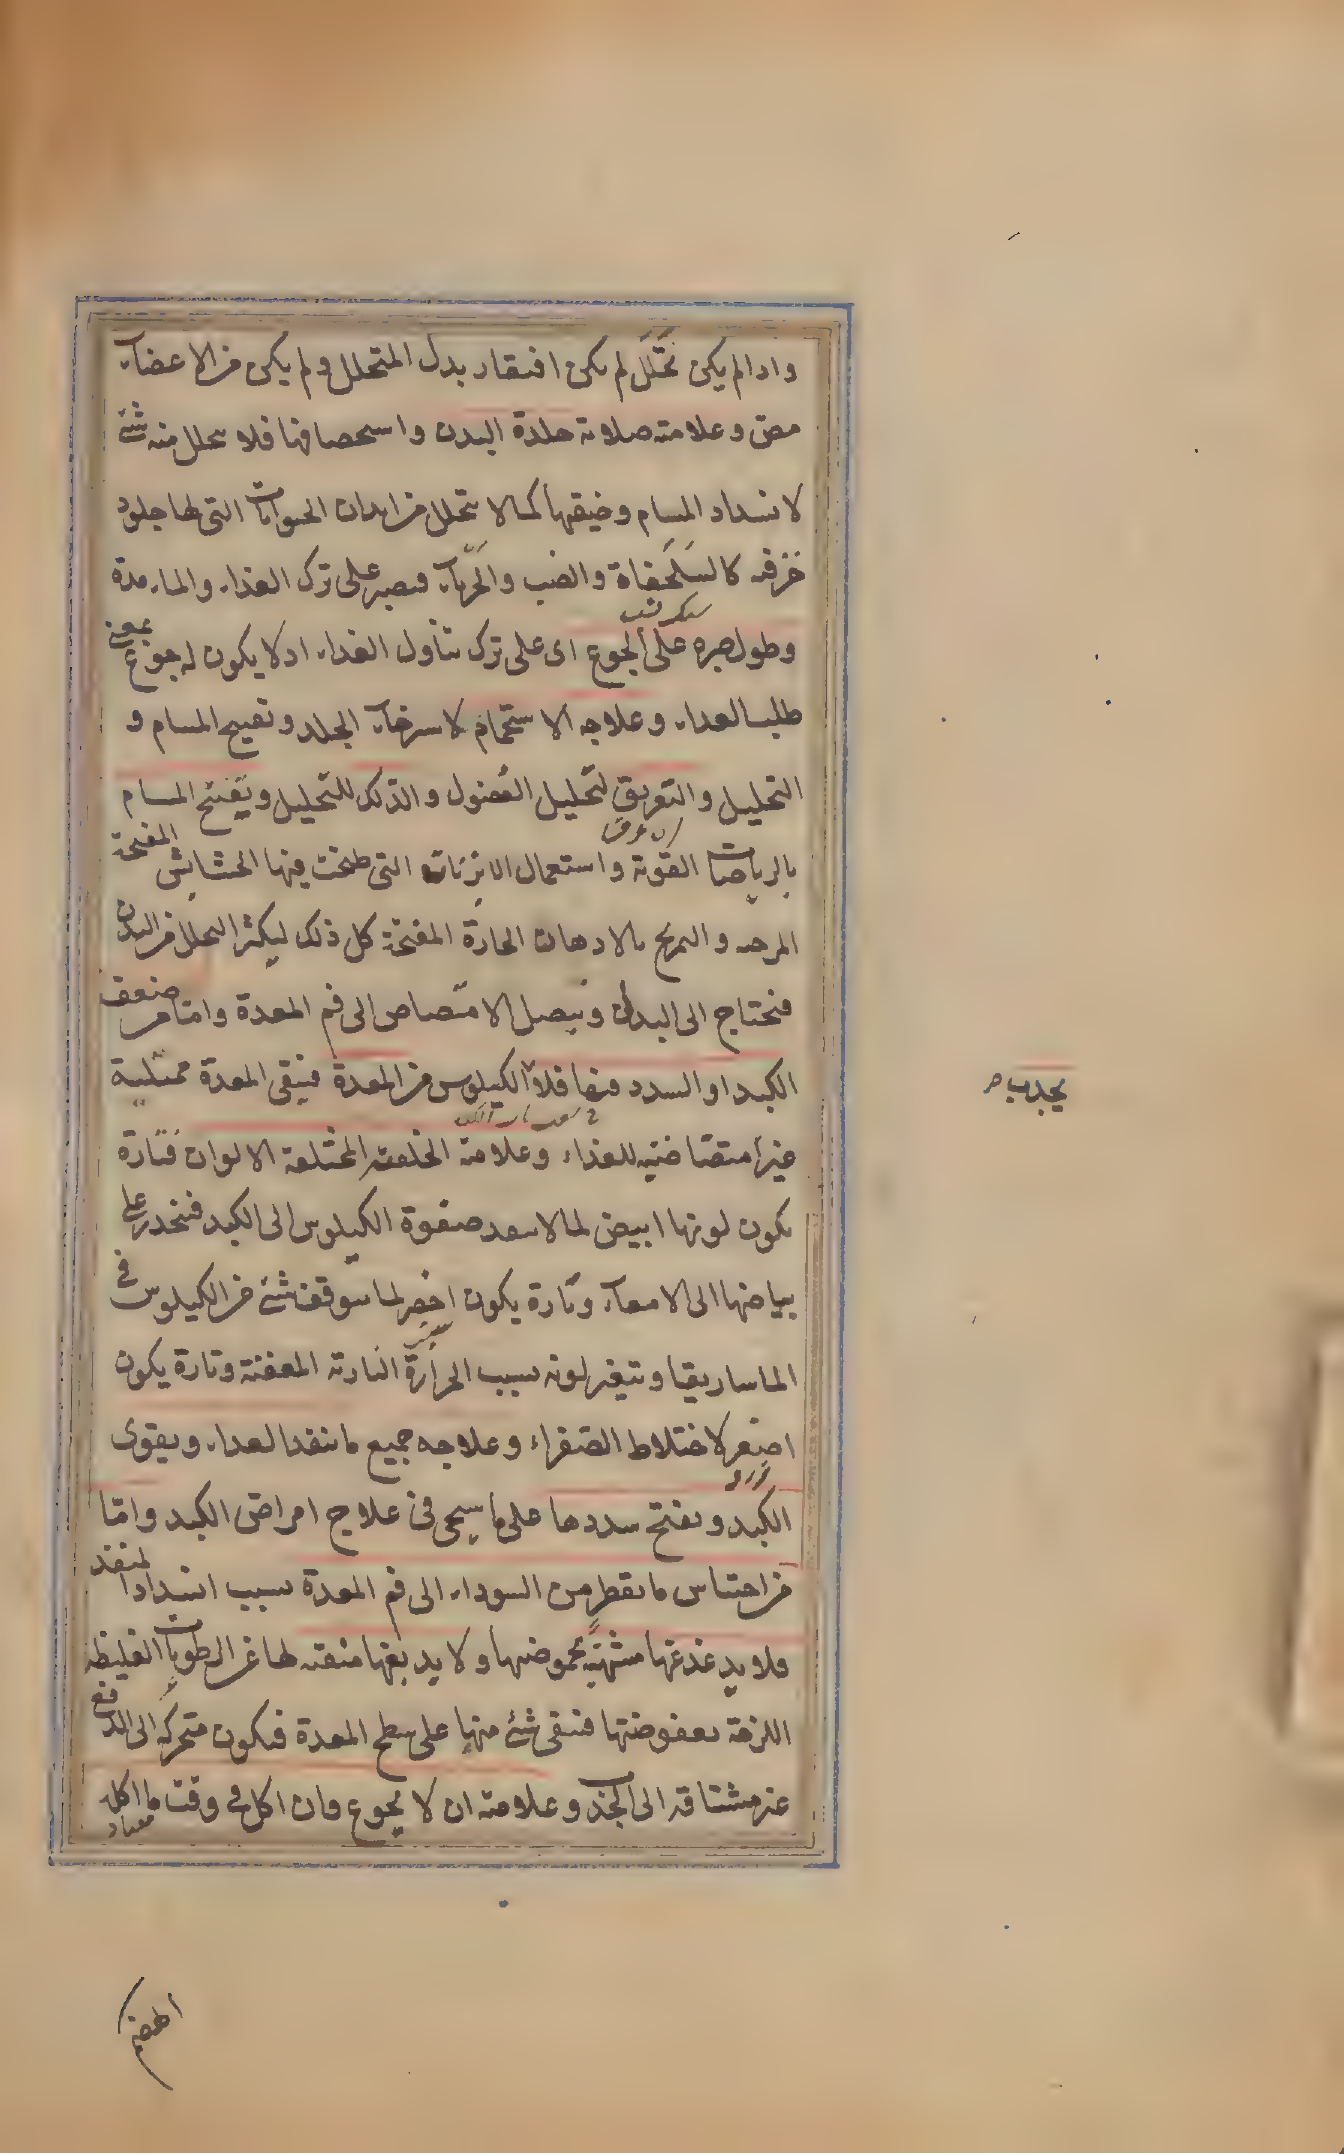 واذا لم يكن تحلّل لم يكن افتقار بدل المتحلل ولم يكن من الاعضاء
مص وعلامته صلابة جلدة البدن واستحصافها فلا يتحلل منه شئ
لانسداد المسام وضيقها كما لا يتحلل من ابدان الحيوانات التى لها جلود
خزفية كالسلحفاة والضب والحرباء فيصبر على ترك الغذاء والماء مدة
وطول صبره على الجوع اى على ترك تناول الغذاء اذ لا يكون له جوع بمعنى
طلب الغداء وعلاجه الاستحمام لاسترخاء الجلد وتفتيح المسام و
التحليل والتعريق لتحليل الفضول والدلك للتحليل وتفتح المسام
بالرياضات القوية واستعمال الابزنات التى طبخت فيها الحشائش المفتحة
المرخية والتمريخ بالادهان الحارة المفتحة كل ذلك ليكثر التحلل من البدن
فتحتاج الى البدل ويتصل الامتصاص الى فم المعدة واما من ضعف
الكبد او السدد فيها فلا الكيلوس من المعدة فيبقى المعدة ممتلية
يجذب
غير متقاضية للغذاء وعلامته الخلفة المختلفة الالوان فتارة
يكون لونها ابيض لما لا ينفد صفوة الكيلوس الى الكبد فينحدر على
بياضها الى الامعاء وتارة يكون اخضر لما يتوقف شئ من الكيلوس فى
الماساريقا ويتغير لونه بسبب الحرارة النارية المعفنة وتارة يكون
اصفر لاختلاط الصفراء وعلاجه جميع ما ينفذ الغداء ويقوى
الكبد ويفتح سددها على ما سيجى فى علاج امراض الكبد وامّا
من احتباس ما يقطر من السوداء الى فم المعدة بسبب انسداد المنفذ
فلا يدغدغها منبّهة بحموضتها ولا يدبغها منقية لها عن الرطوبات الغليظة
اللزجة بعفوصتها فيبقى شئ منها على سطح المعدة فيكون متحركة الى الدفع
غير مشتاقة الى الجذب وعلامته ان لا يجوع وان اكل فى وقت ما اكل
الهضم